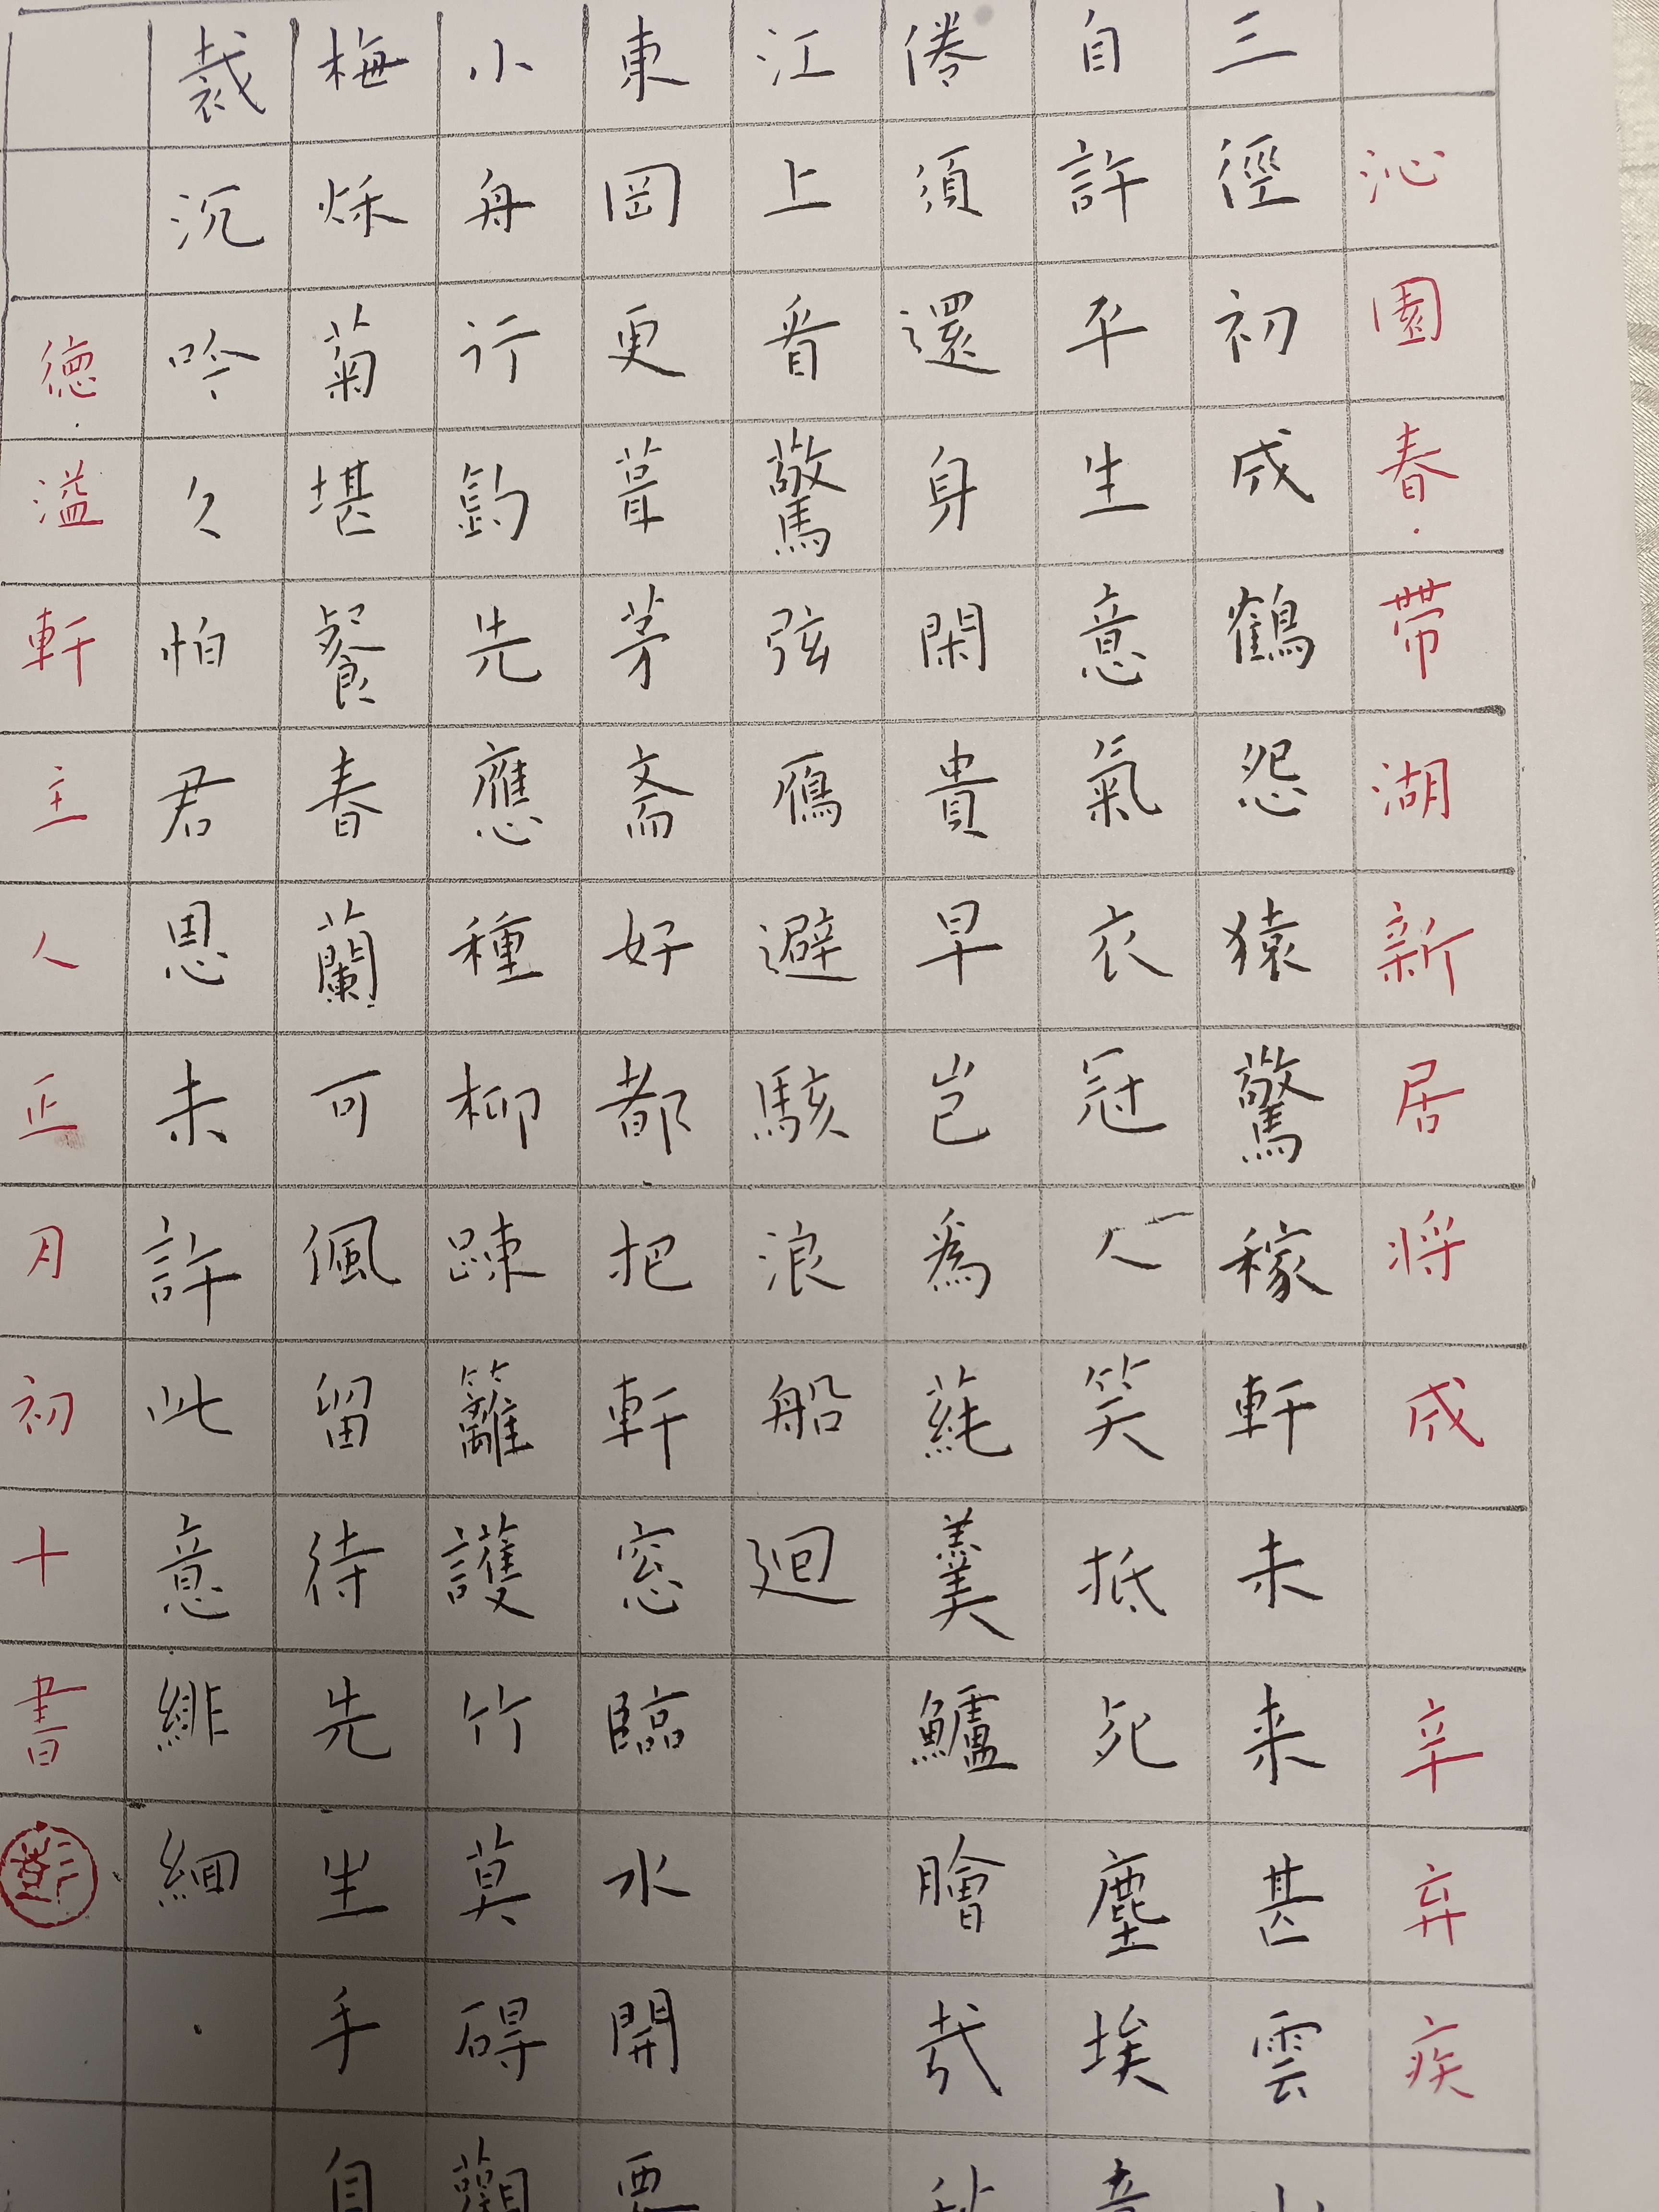 沁園春帶湖新居将成 辛弃疾
三徑初成鶴怨猿驚稼軒未来甚雲
自許平生意氣衣冠人笑抵死塵埃意
倦須還身閑貴早豈為蒓羹鱸膾哉秋
江上看驚弦鴈避駭浪船迴
東岡更葺茅斎好都把軒窓臨水開要
小舟行釣先應種柳疎籬護竹莫碍觀
梅秌菊堪餐春蘭可佩留待先生手自
裁沉吟久怕君恩未許此意緋絗
德溢軒主人正月初十書